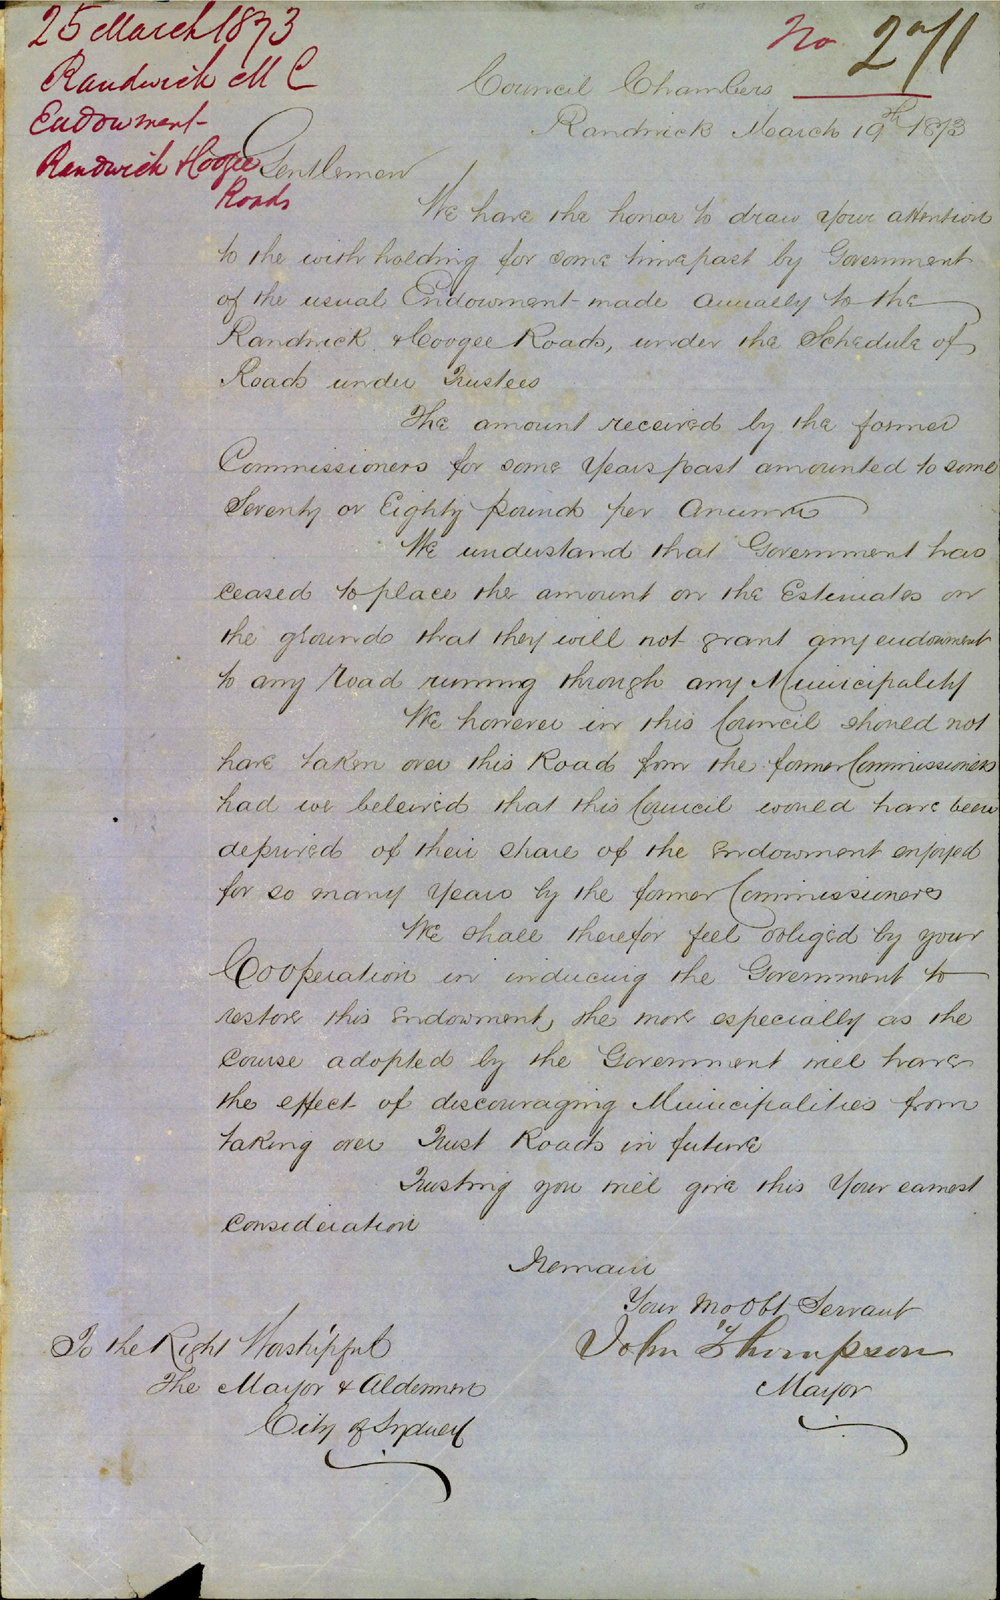 25 March 1873
Randwick M C
Endowment
Randwick & Coogee
Roads
No 271
Council Chambers
Randwick March 19th 1873
Gentlemen
We have the honor to draw your attention
to the with holding for some time past by Government
of the usual Endowment made anually to the
Randwick & Coogee Roads, under the Schedule of
Roads under Trustees
The amount received by the former
Commissioners for some years past amounted to some
Seventy or Eighty pounds per Annum
We understand that Government has
ceased to place the amount on the Estimates on
the grounds that they will not grant any endowment
to any Road running through any Municipality
We however in this Council should not
have taken over this Road from the former Commissioners
had we beleived that this Council would have been
deprived of their share of the Endowment enjoyed
for so many years by the former Commissioners
We shall therefor feel obliged by your
Cooperation in inducing the Government to
restore this Endowment, the more especially as the
Course adopted by the Government will have
the effect of discouraging Municipalities from
taking over Trust Roads in future
Trusting you will give this your earnest
consideration
I remain
Your Mo Obt Servant
John Thompson
Mayor
To the Right Worshipful
The Mayor & Aldermen
City of Sydney